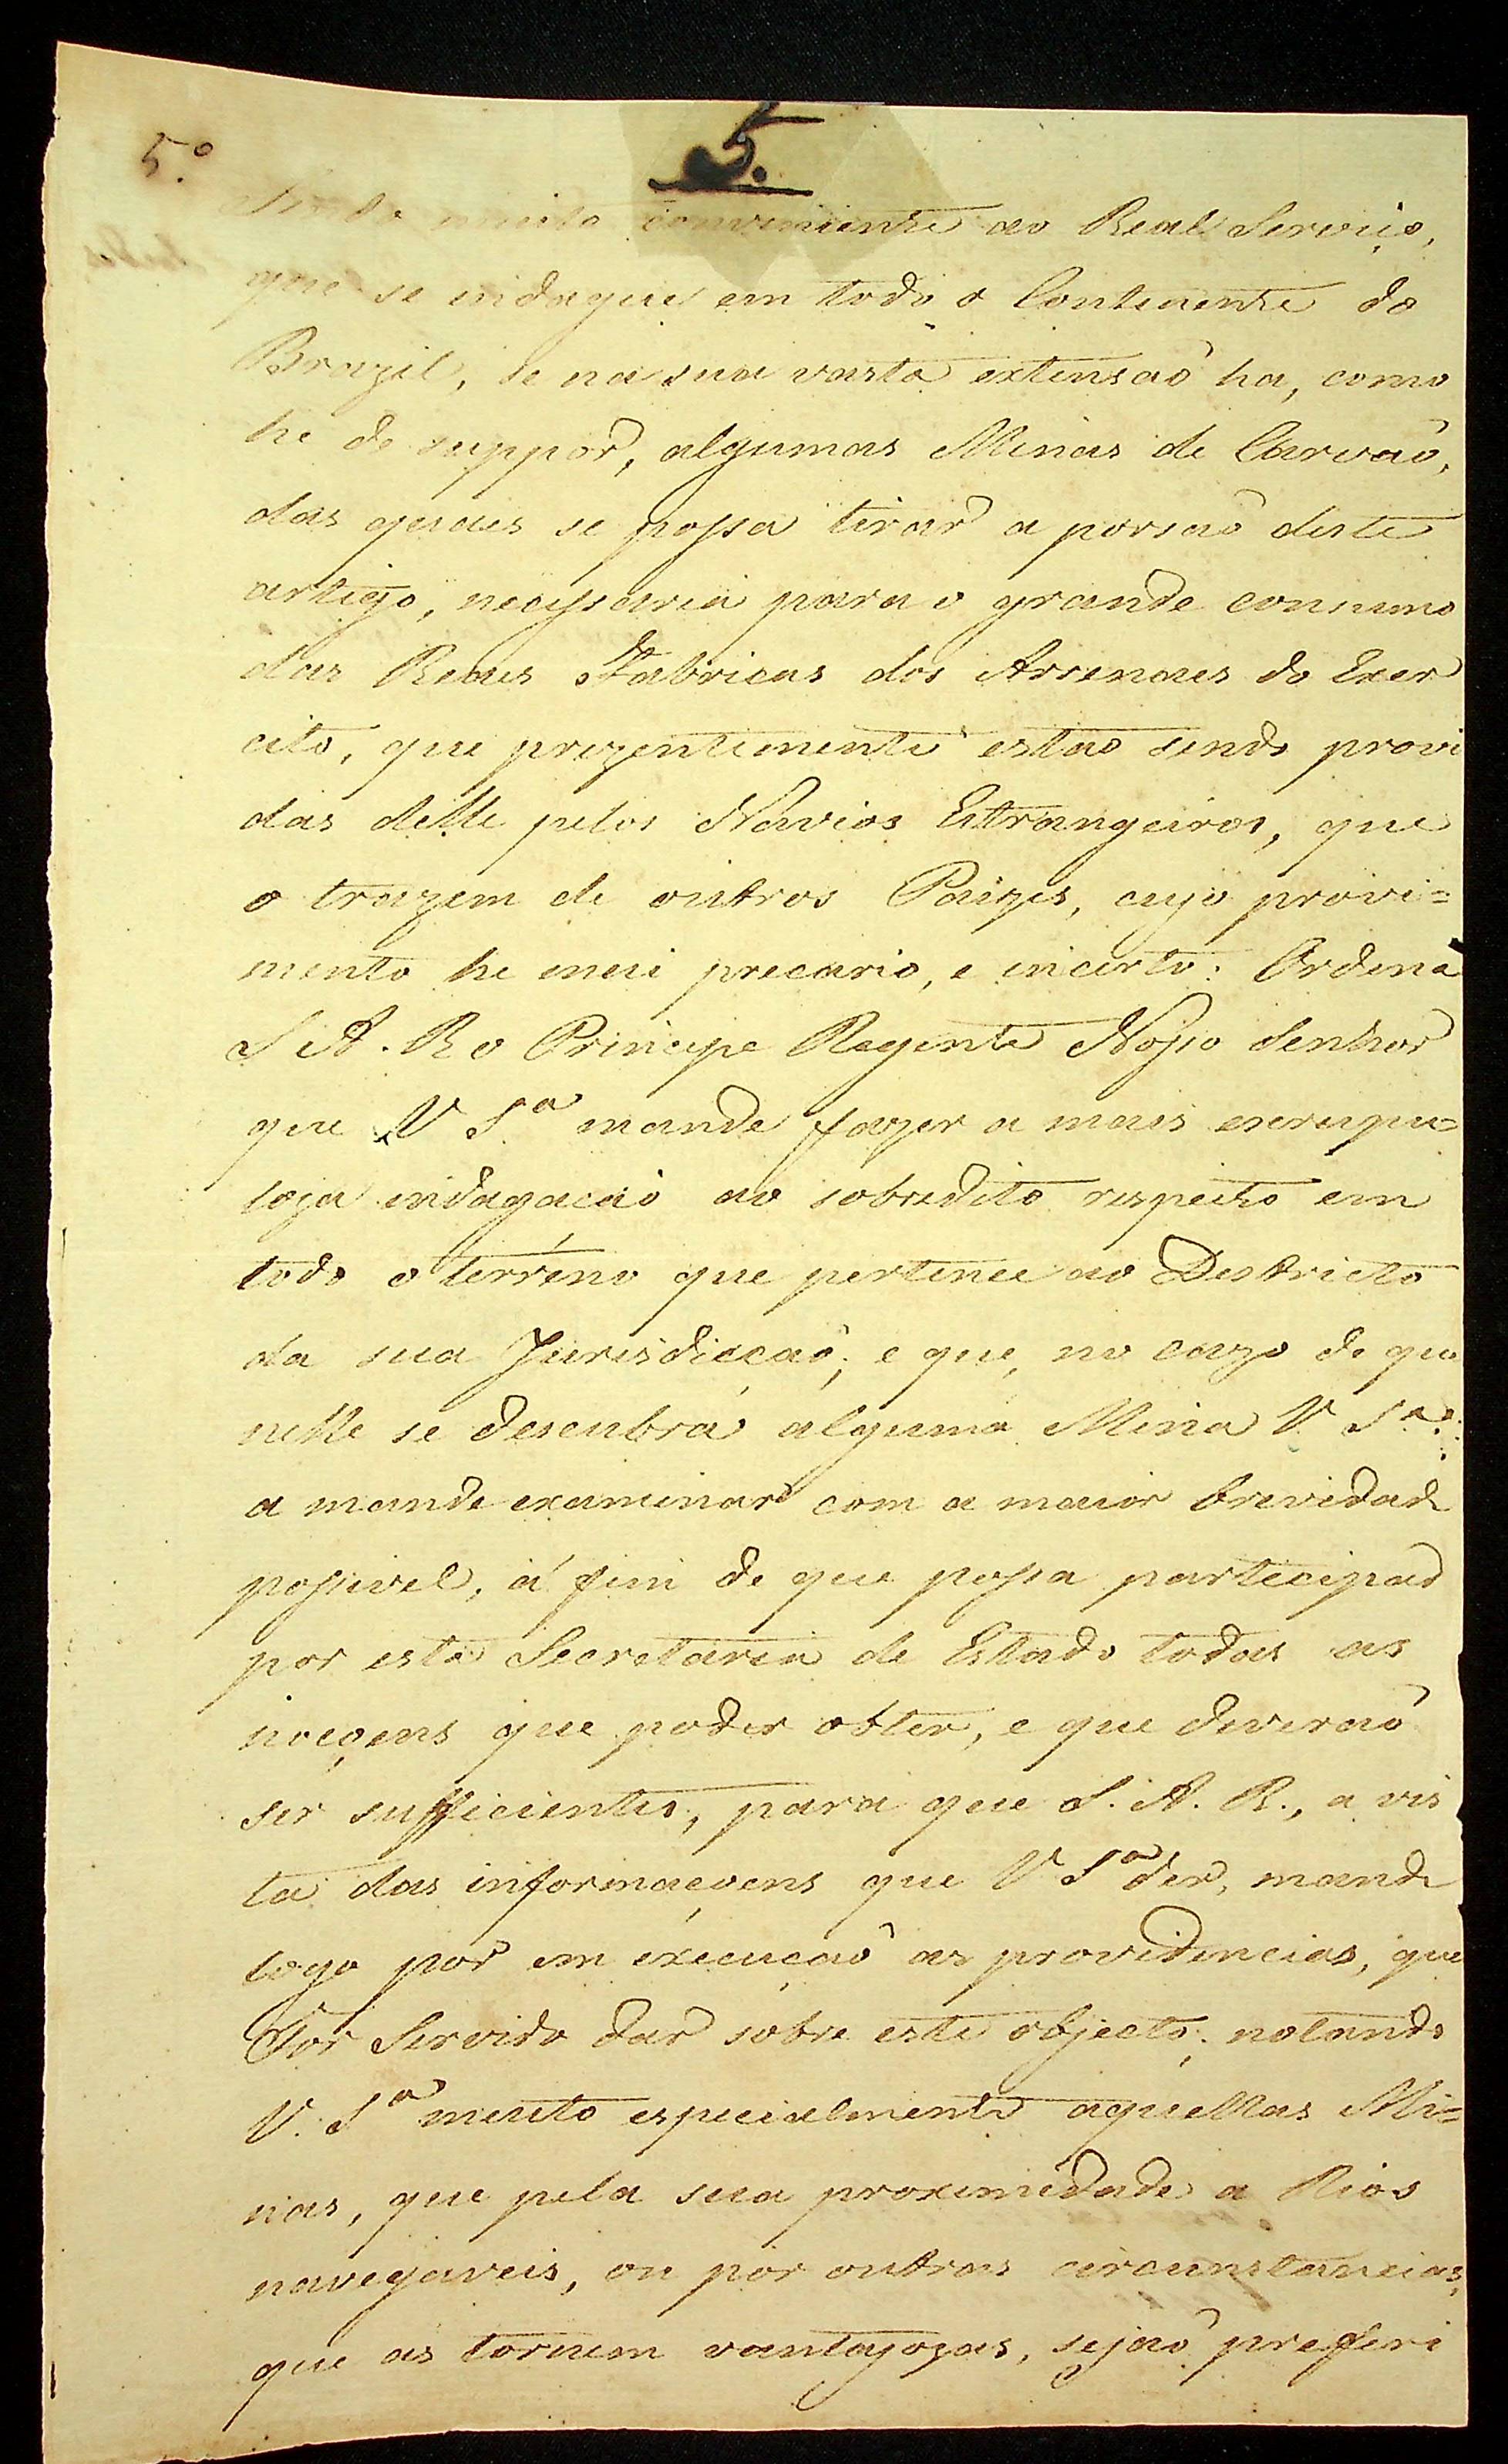 5.
5.º
Sendo muito conveniente ao Real Serviço,
que se indague em todo o Continente do
Brazil, se na sua vasta extensaõ ha, como
he de suppor, algumas Minas de Carvaõ,
das quaes se possa tirar a porsaõ deste
artigo, necessaria para o grande consumo
das Reaes Fabricas dos Arsenaes do Exer
cito, que prezentemente estaõ sendo provi
das delle pelos Navios Estrangeiros, que
o trazem de outros Paizes, cujo provi=
mento he mui precario, e incerto: Ordena
S A. R o Principe Regente Nosso Senhor
que V Sª mande fazer a mais escrupu=
loza indagacaõ ao sobredito respeito em
todo o terréno que pertence ao Destricto
da sua Jurisdicçaõ; e que, no cazo de que
nelle se descubra alguma Mina V. Sª.
a mande examinar com a maior brevidade
possivel, á fim de que possa partecipar
por esta Secretaria de Estado todas as
noçoens que poder obter, e que deveraõ
ser sufficientes, para que S. A. R., a vis
ta das informaçoens que V Sª der, mande
logo por em execuçaõ as providencias, que
For Servido dar sobre este objecto; notando
V. Sª muito especialmente aquellas Mi=
nas, que pela sua proximidade a Rios
navegaveis, ou por outras circunstancias,
que as tornem vantajozas, sejaõ preferi